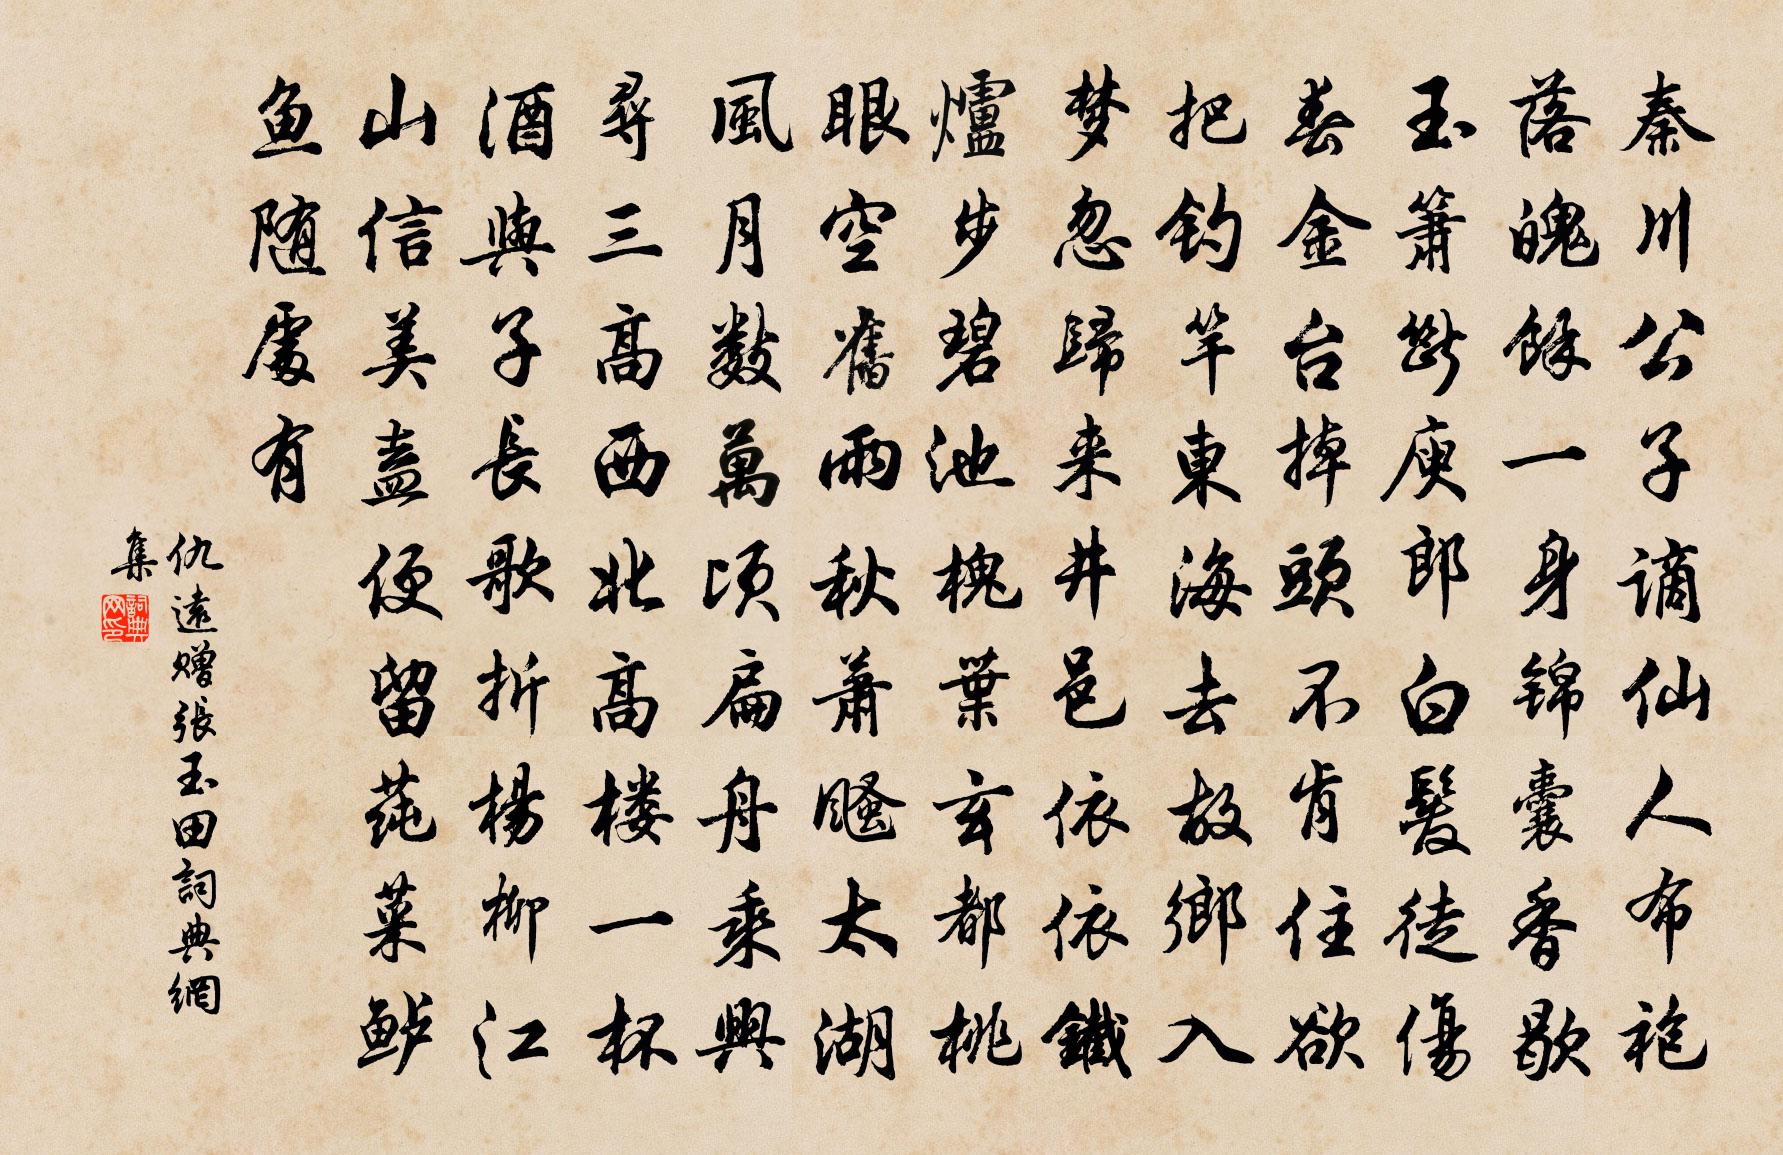 秦川公子谪仙人布袍
落魄餘一身锦囊香歇
玉箫断庾郎白髪徒傷
春金台掉頭不肯住欲
把钓竿東海去故鄉入
梦忽歸来井邑依依鐵
爐步碧池槐葉玄都桃
眼空舊雨秋萧飋太湖
風月數萬頃扁舟乘興
尋三高西北高楼一杯
酒與子長歌折楊柳江
山信美盍便留莼菜鲈
鱼随處有
仇遠赠張玉田詞典網
集
詞典网印